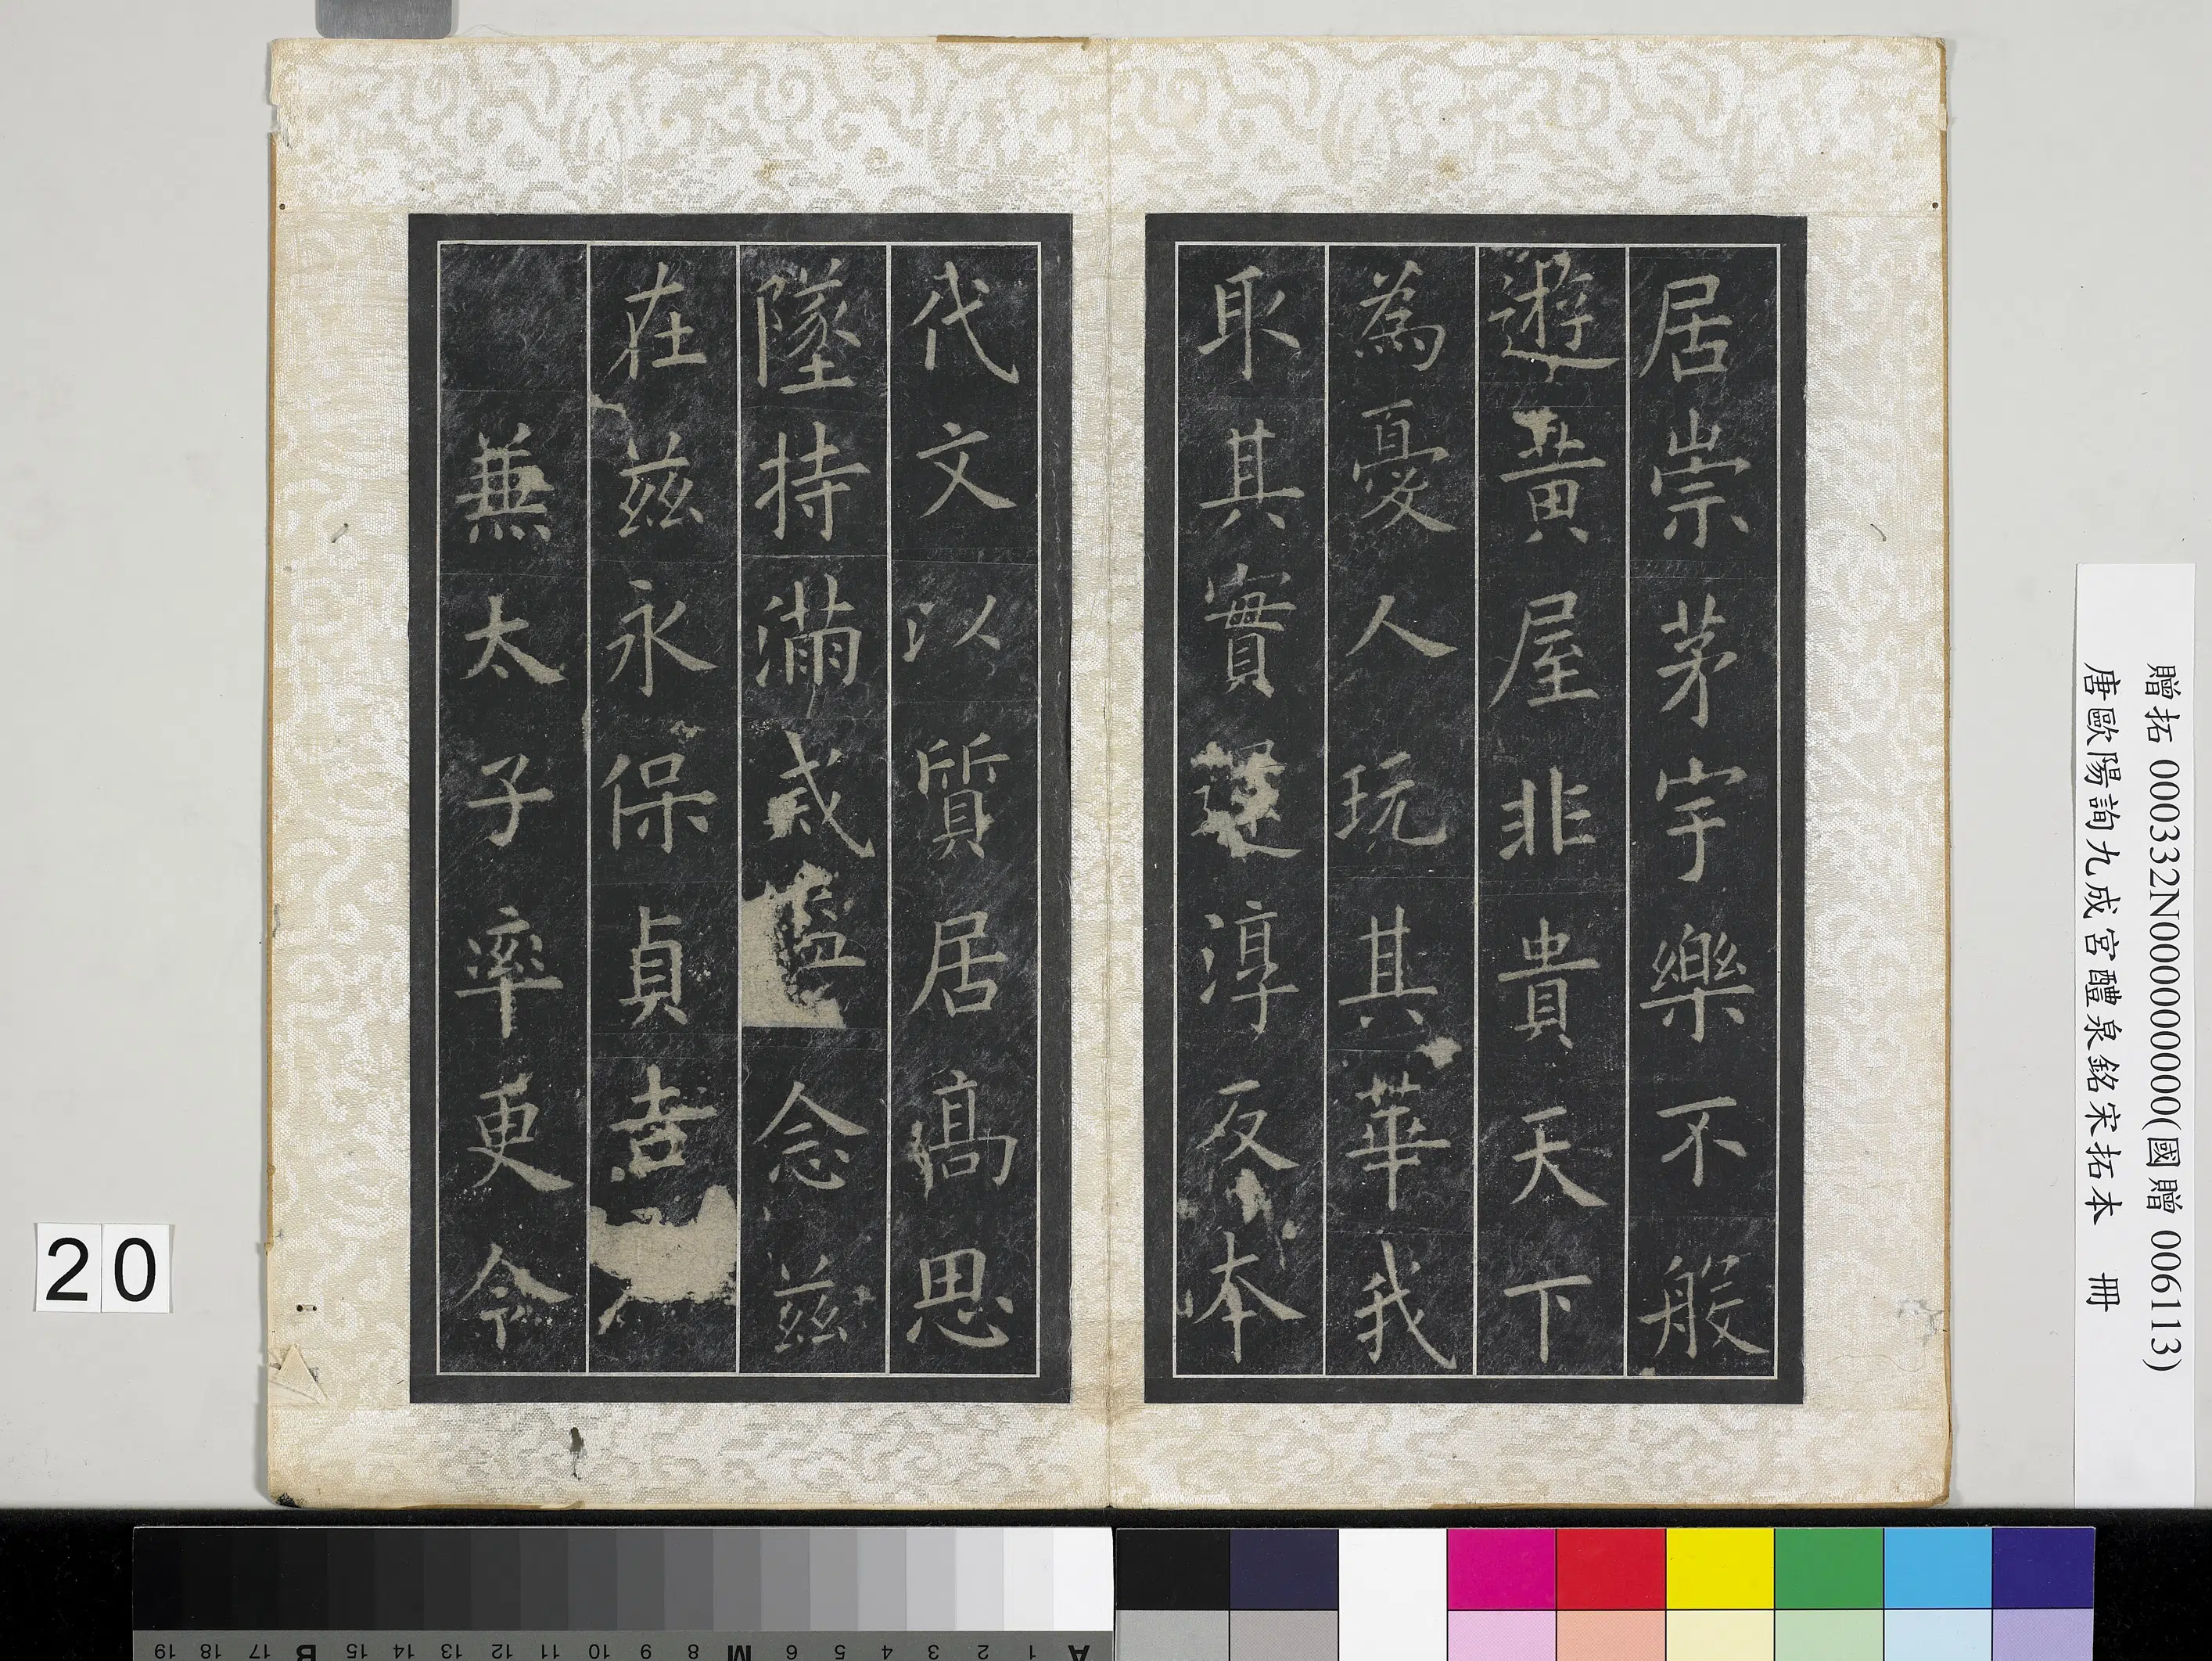 居崇茅宇樂不般
遊黃屋非貴天下
為憂人玩其華我
取其實還淳反本
代文以質居高思
墜持滿戒溢念茲
在茲永保貞吉
兼太子率更令
贈拓 000332N000000000(國贈 006113)
唐歐陽詢九成宮醴泉銘宋拓本 冊
20
A 1 2 3 4 5 6 M 8 9 10 11 12 13 14 15 B 17 18 19